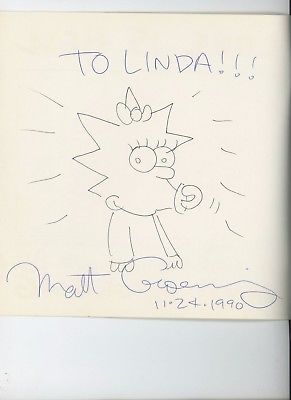 TO LINDA!!!
Matt Groening
11·24·1990